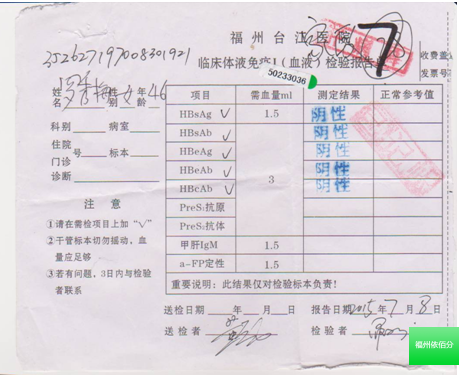 福州台江医院
352627197008301921
临床体液免疫I(血液)检验报告
7
收费盖
发票号
50233036
姓名 性别 女 年龄 46
科别 病室
住院号 标本
门诊
诊断
注 意
①请在需检项目上加“√”
②干管标本切勿摇动,血
量应足够
③若有问题,3日内与检验
者联系
项目 需血量ml 测定结果 正常参考值
HBsAg √ 1.5 阴性
HBsAb √ 阴性
HBeAg √ 阴性
HBeAb √ 3 阴性
HBcAb √ 阴性
PreS₂抗原
PreS₂抗体
甲肝IgM 1.5
a-FP定性 1.5
重要说明:此结果仅对检验标本负责!
送检日期 年 月 日 报告日期2015年7月8日
送检者 检验者
福州依佰分